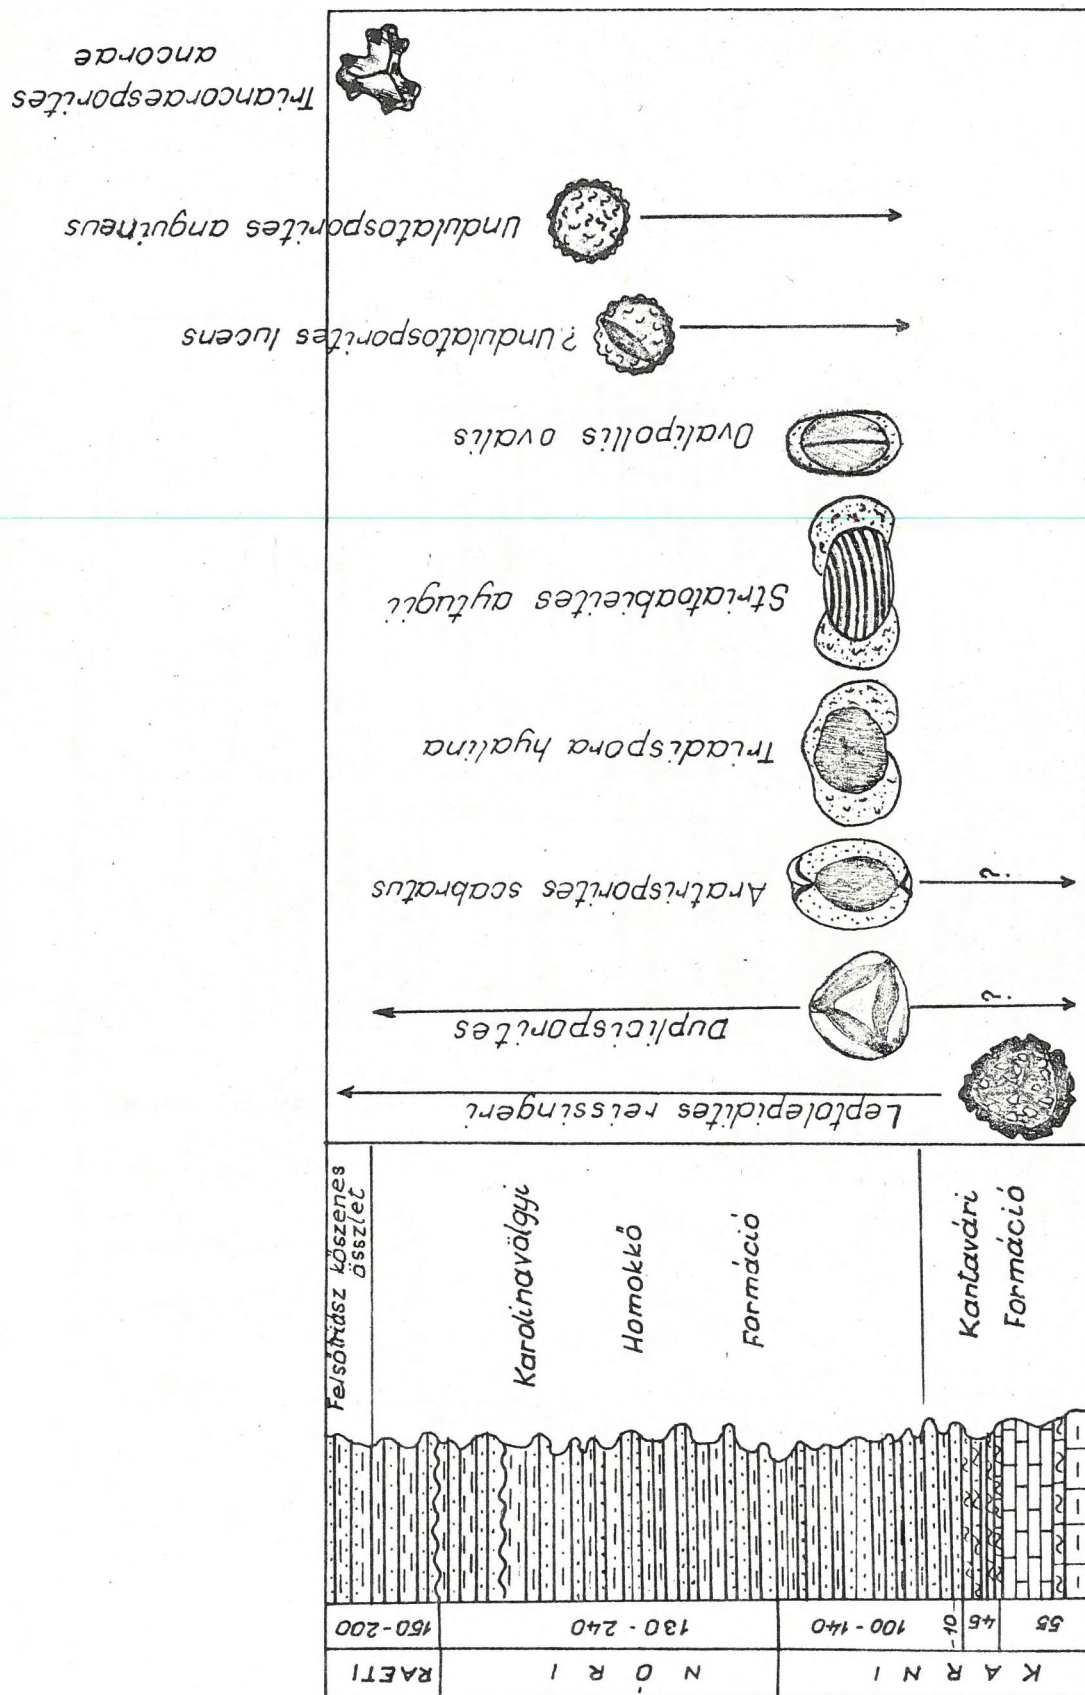 K A R N I
N Ó R I
RAETI
55
45
100-140
130-240
150-200
Kantavári
Formáció
Karolinavölgyi
Homokkő
Formáció
Felsőtriász kőszenes
összlet
Leptolepidites reissingeri
Duplicisporites
?
Aratrisporites scabratus
?
Triadispora hyalina
Striatoabieites aytugii
Ovalipollis ovalis
? Undulatosporites lucens
Undulatosporites anguineus
Triancoraesporites
ancorae